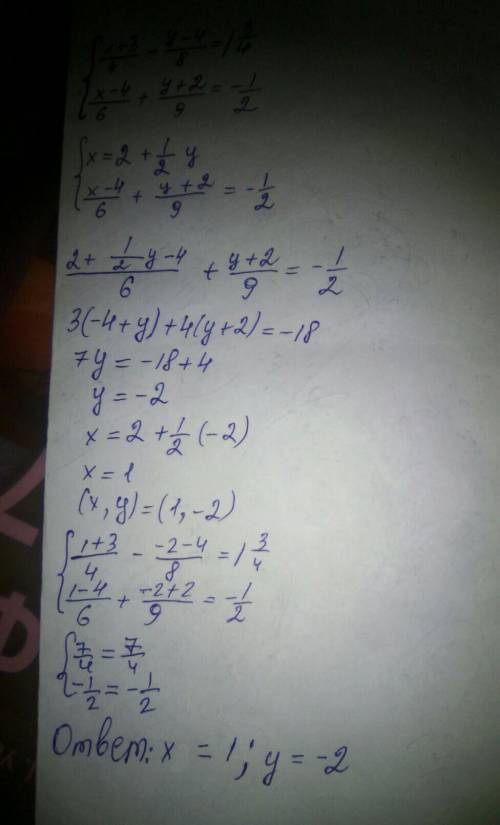 {(1+3)/4 - (y-4)/8 = 1 3/4
{(x-4)/6 + (y+2)/9 = -1/2
{x = 2 + 1/2 y
{(x-4)/6 + (y+2)/9 = -1/2
(2 + 1/2 y - 4)/6 + (y+2)/9 = -1/2
3(-4+y)+4(y+2)=-18
7y = -18+4
y = -2
x = 2 + 1/2 (-2)
x = 1
(x, y) = (1, -2)
{(1+3)/4 - (-2-4)/8 = 1 3/4
{(1-4)/6 + (-2+2)/9 = -1/2
{7/4 = 7/4
{-1/2 = -1/2
Ответ: x = 1; y = -2